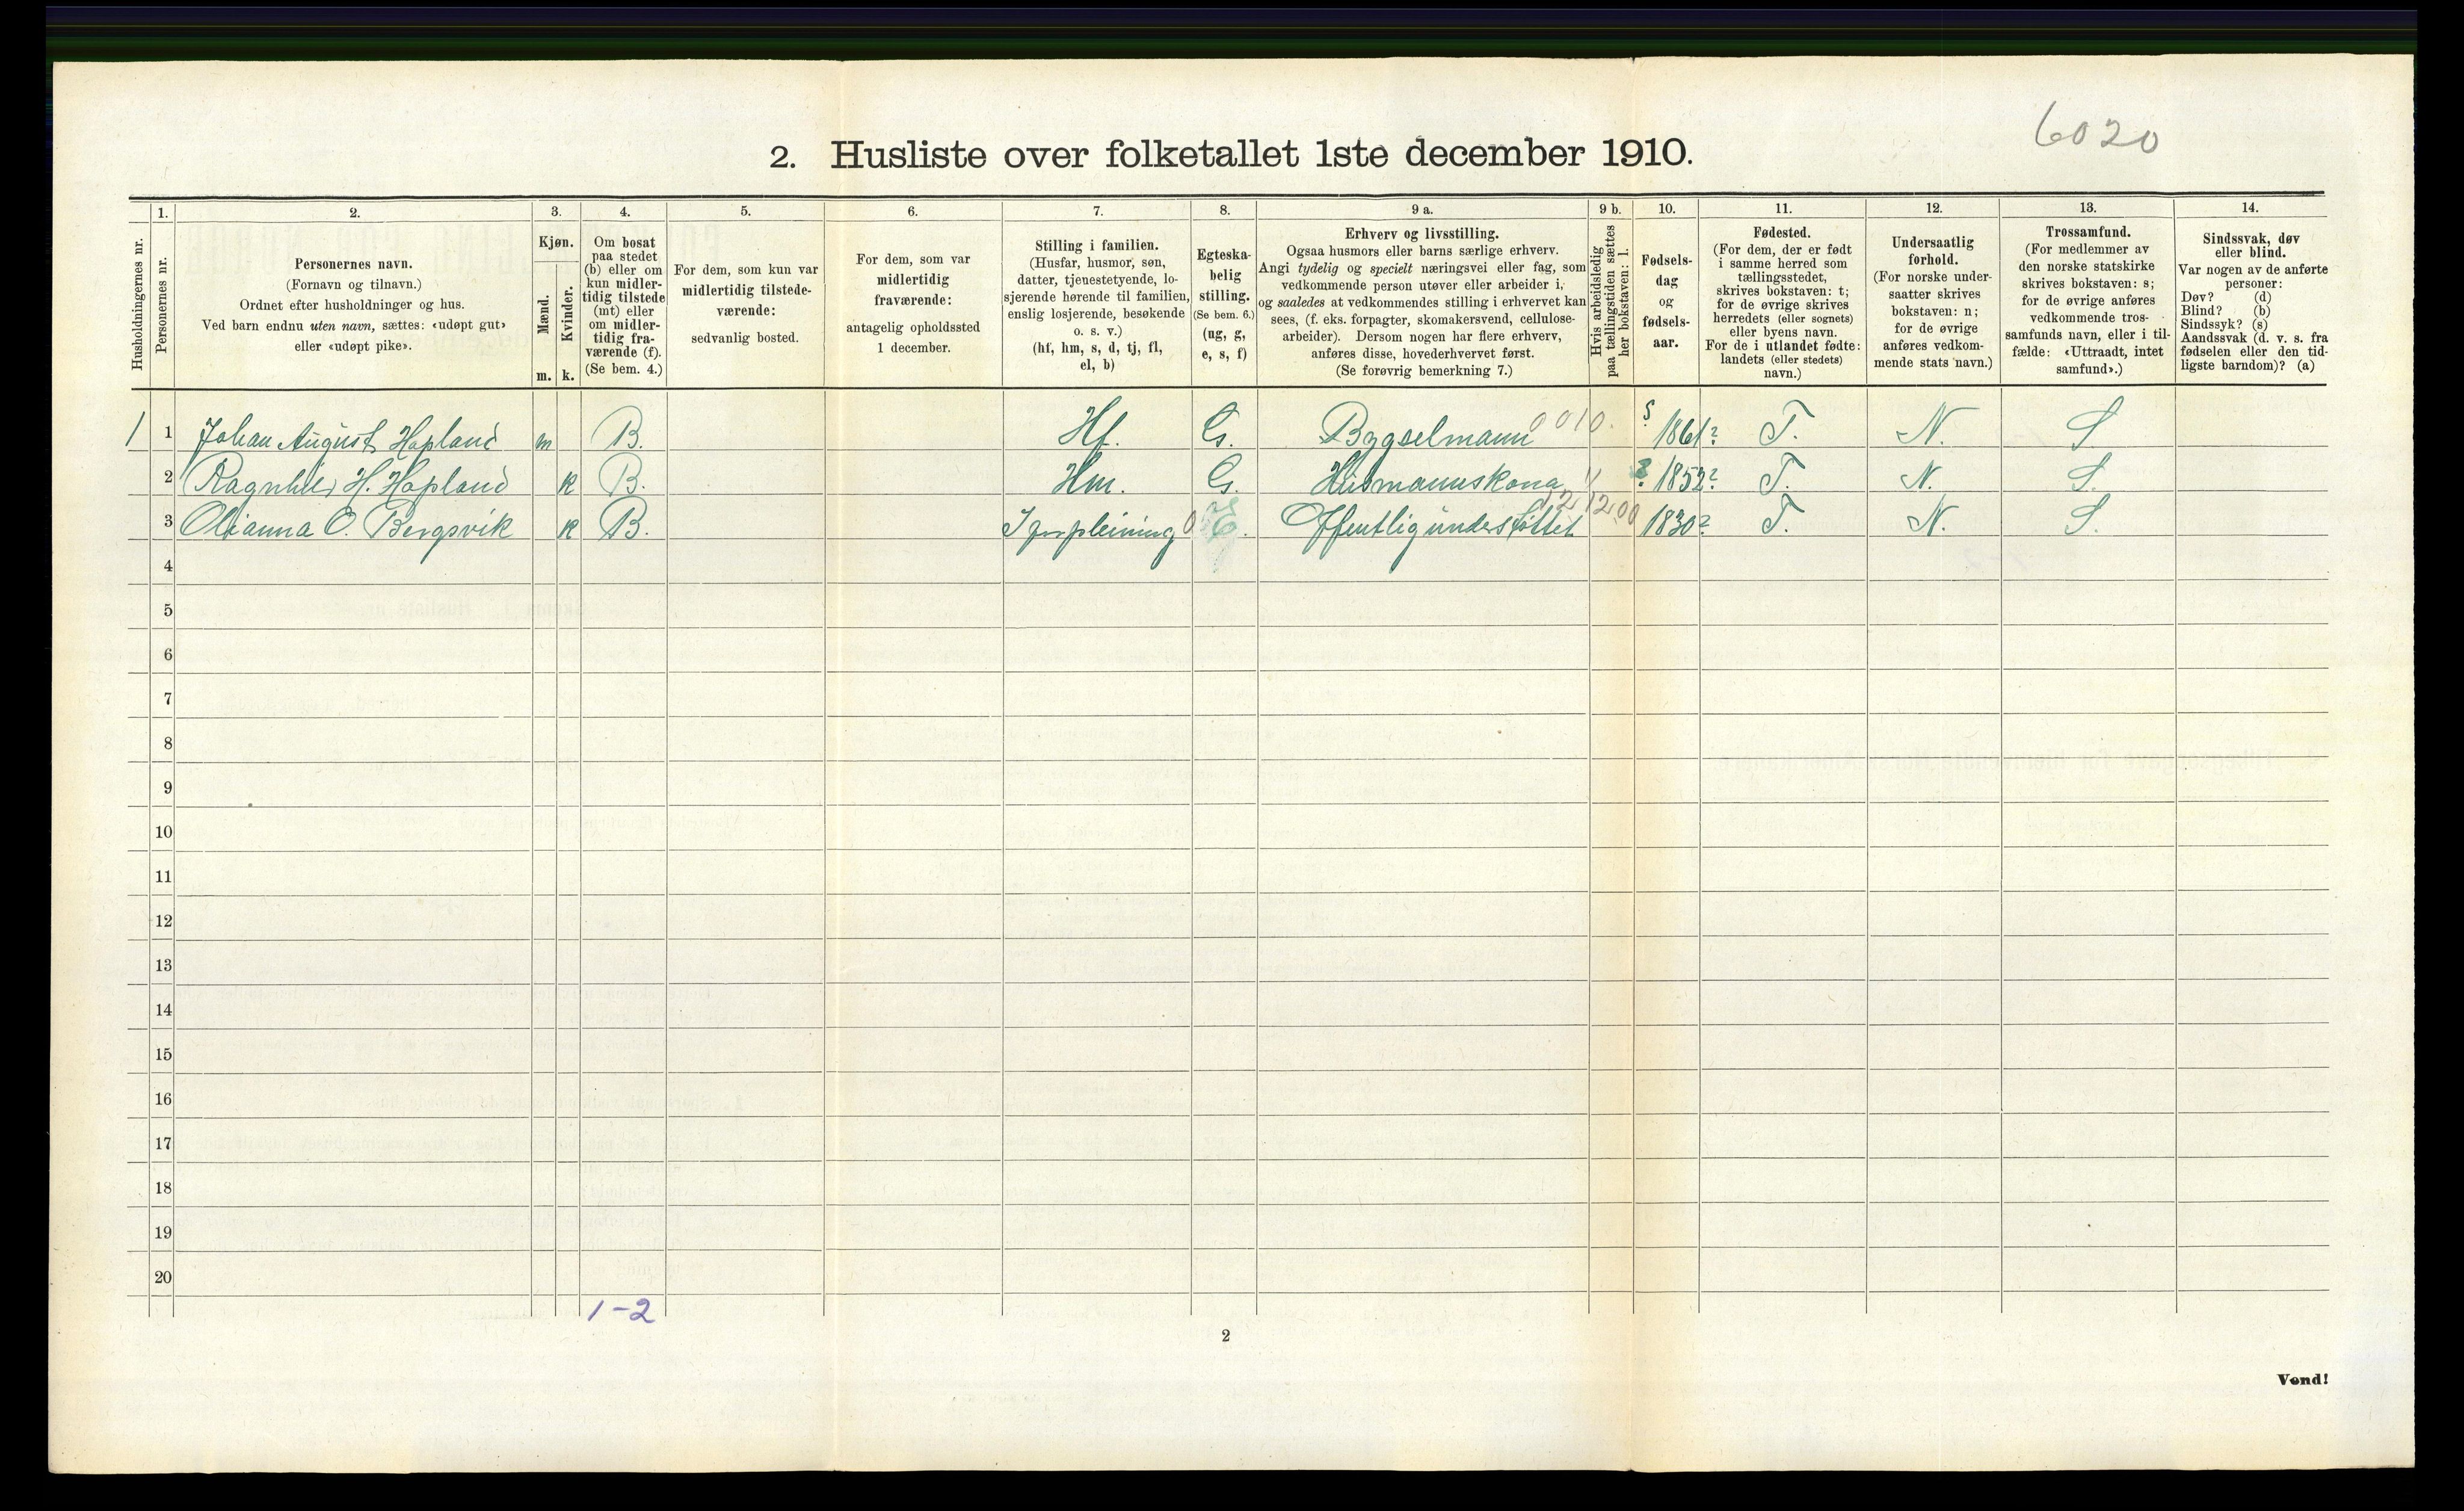 6020
2. Husliste over folketallet 1ste december 1910.
Husholdningernes nr.
1.
Personernes nr.
2.
Personernes navn.
(Fornavn og tilnavn.)
Ordnet efter husholdninger og hus.
Ved barn endnu uten navn, sættes: «udøpt gut»
eller «udøpt pike».
3.
Kjøn.
Mænd.
Kvinder.
m. k.
4.
Om bosat
paa stedet
(b) eller om
kun midler-
tidig tilstede
(mt) eller
om midler-
tidig fra-
værende (f).
(Se bem. 4.)
5.
For dem, som kun var
midlertidig tilstede-
værende:
sedvanlig bosted.
6.
For dem, som var
midlertidig
fraværende:
antagelig opholdssted
1 december.
7.
Stilling i familien.
(Husfar, husmor, søn,
datter, tjenestetyende, lo-
sjerende hørende til familien,
enslig losjerende, besøkende
o. s. v.)
(hf, hm, s, d, tj, fl,
el, b)
8.
Egteska-
belig
stilling.
(Se bem. 6.)
(ng, g,
e, s, f)
9 a.
Erhverv og livsstilling.
Ogsaa husmors eller barns særlige erhverv.
Angi tydelig og specielt næringsvei eller fag, som
vedkommende person utøver eller arbeider i,
og saaledes at vedkommendes stilling i erhvervet kan
sees, (f. eks. forpagter, skomakersvend, cellulose-
arbeider). Dersom nogen har flere erhverv,
anføres disse, hovederhvervet først.
(Se forøvrig bemerkning 7.)
9 b.
Hvis arbeidsledig
paa tællingstiden sættes
her bokstaven: l.
10.
Fødsels-
dag
og
fødsels-
aar.
11.
Fødested.
(For dem, der er født
i samme herred som
tællingsstedet,
skrives bokstaven: t;
for de øvrige skrives
herredets (eller sognets)
eller byens navn.
For de i utlandet fødte:
landets (eller stedets)
navn.)
12.
Undersaatlig
forhold.
(For norske under-
saatter skrives
bokstaven: n;
for de øvrige
anføres vedkom-
mende stats navn.)
13.
Trossamfund.
(For medlemmer av
den norske statskirke
skrives bokstaven: s;
for de øvrige anføres
vedkommende tros-
samfunds navn, eller i til-
fælde: «Uttraadt, intet
samfund».)
14.
Sindssvak, døv
eller blind.
Var nogen av de anførte
personer:
Døv? (d)
Blind? (b)
Sindssyk? (s)
Aandssvak (d. v. s. fra
fødselen eller den tid-
ligste barndom)? (a)
1 1 Johan August Hopland m B. Hf. G. Bygselmann 0010. 1861? T. N. S
2 Ragnhild H. Hopland k B. Hm. G. Husmannskona " ? 1852? T. N. S.
3 Olianna O. Bergsvik k B. I forpleining 0 E. Offentlig understøttet 12,12,00 1830? T. N. S.
4
5
6
7
8
9
10
11
12
13
14
15
16
17
18
19
20
1-2
2
Vend!